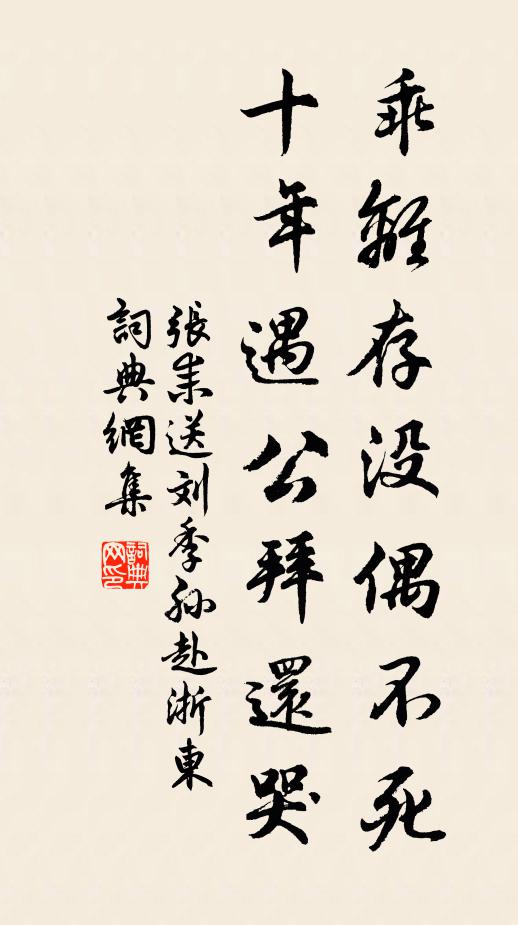 乖離存没偶不死
十年遇公拜還哭
張耒送刘季孙赴浙東
詞典網集
詞典網印